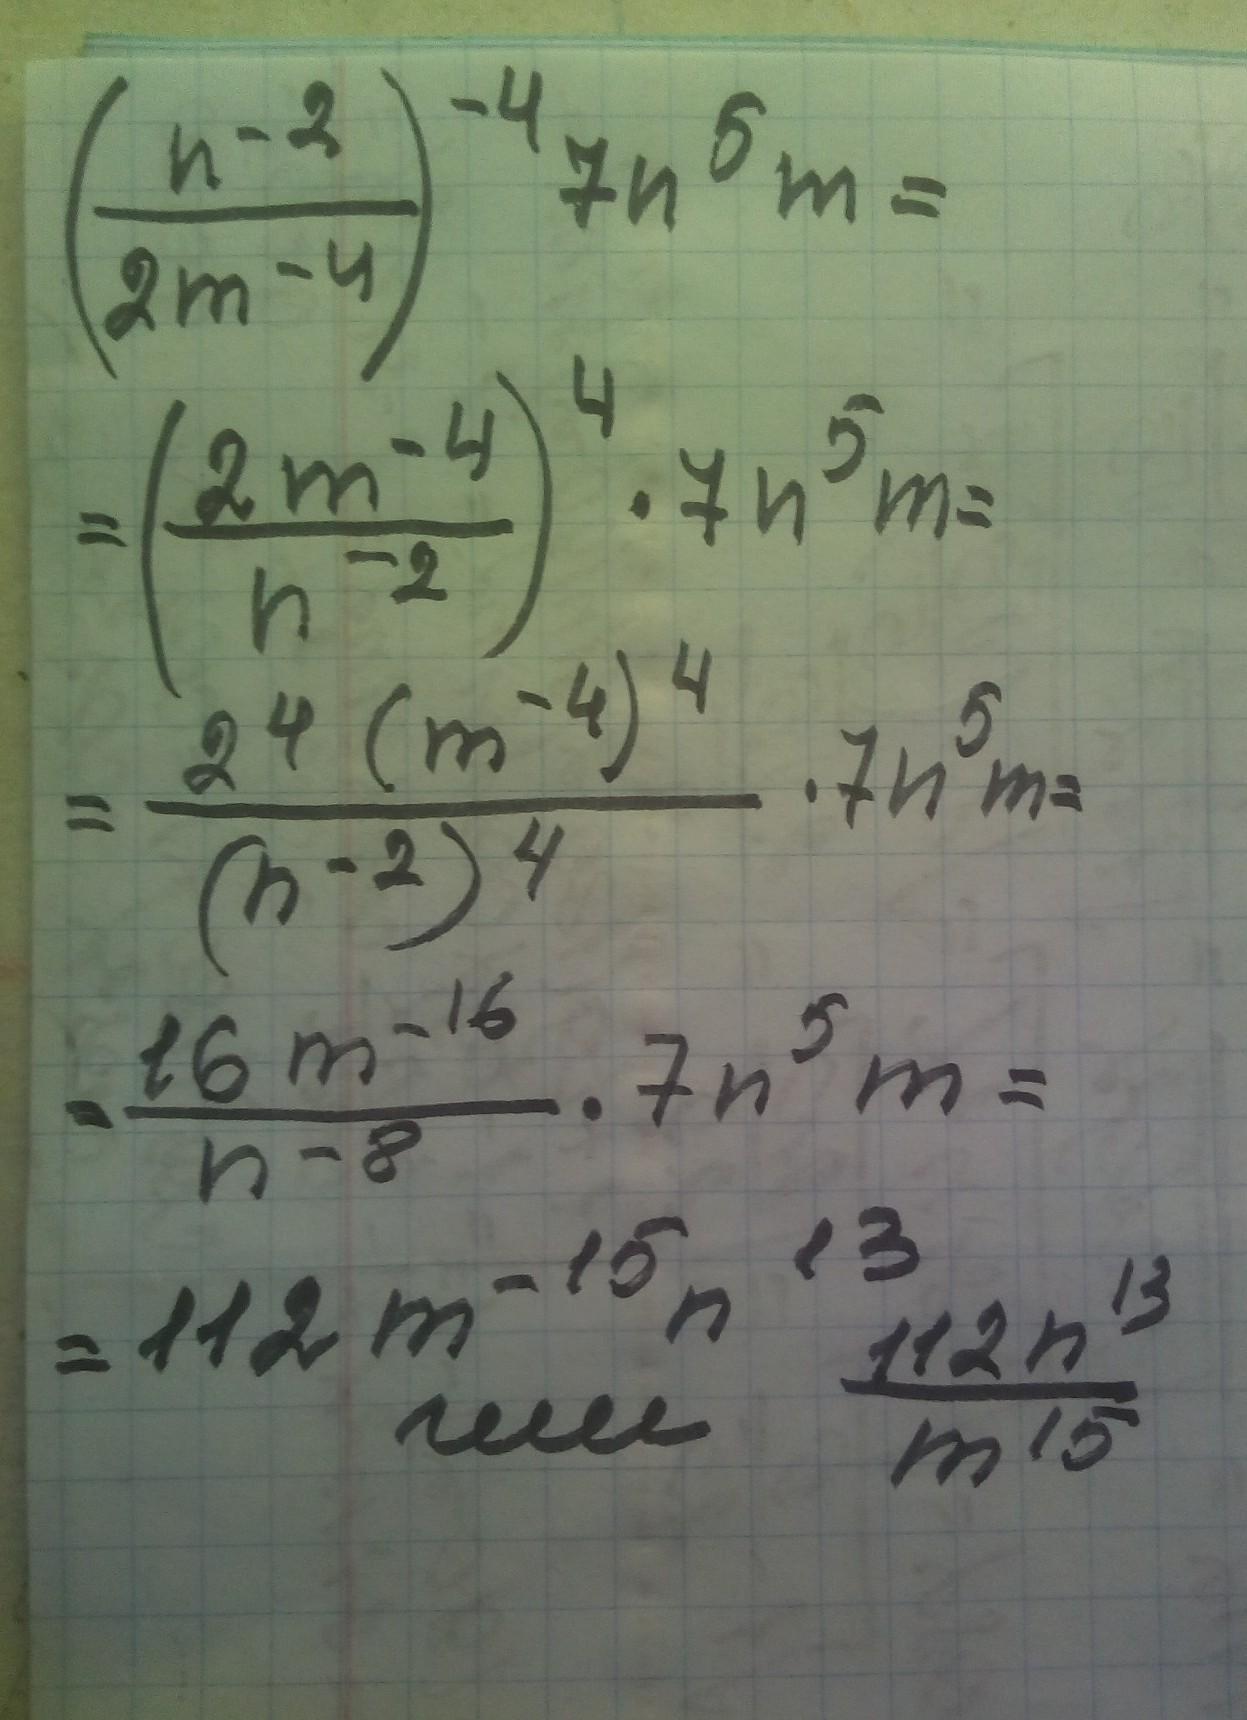 (n⁻²/2m⁻⁴)⁻⁴ 7n⁵m =
= (2m⁻⁴/n⁻²)⁴ · 7n⁵m =
= 2⁴(m⁻⁴)⁴/(n⁻²)⁴ · 7n⁵m =
= 16m⁻¹⁶/n⁻⁸ · 7n⁵m =
= 112m⁻¹⁵n¹³
или 112n¹³/m¹⁵